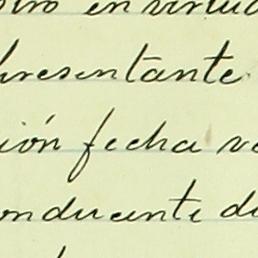 en virtud
presentante
ión fecha ve
onducente de